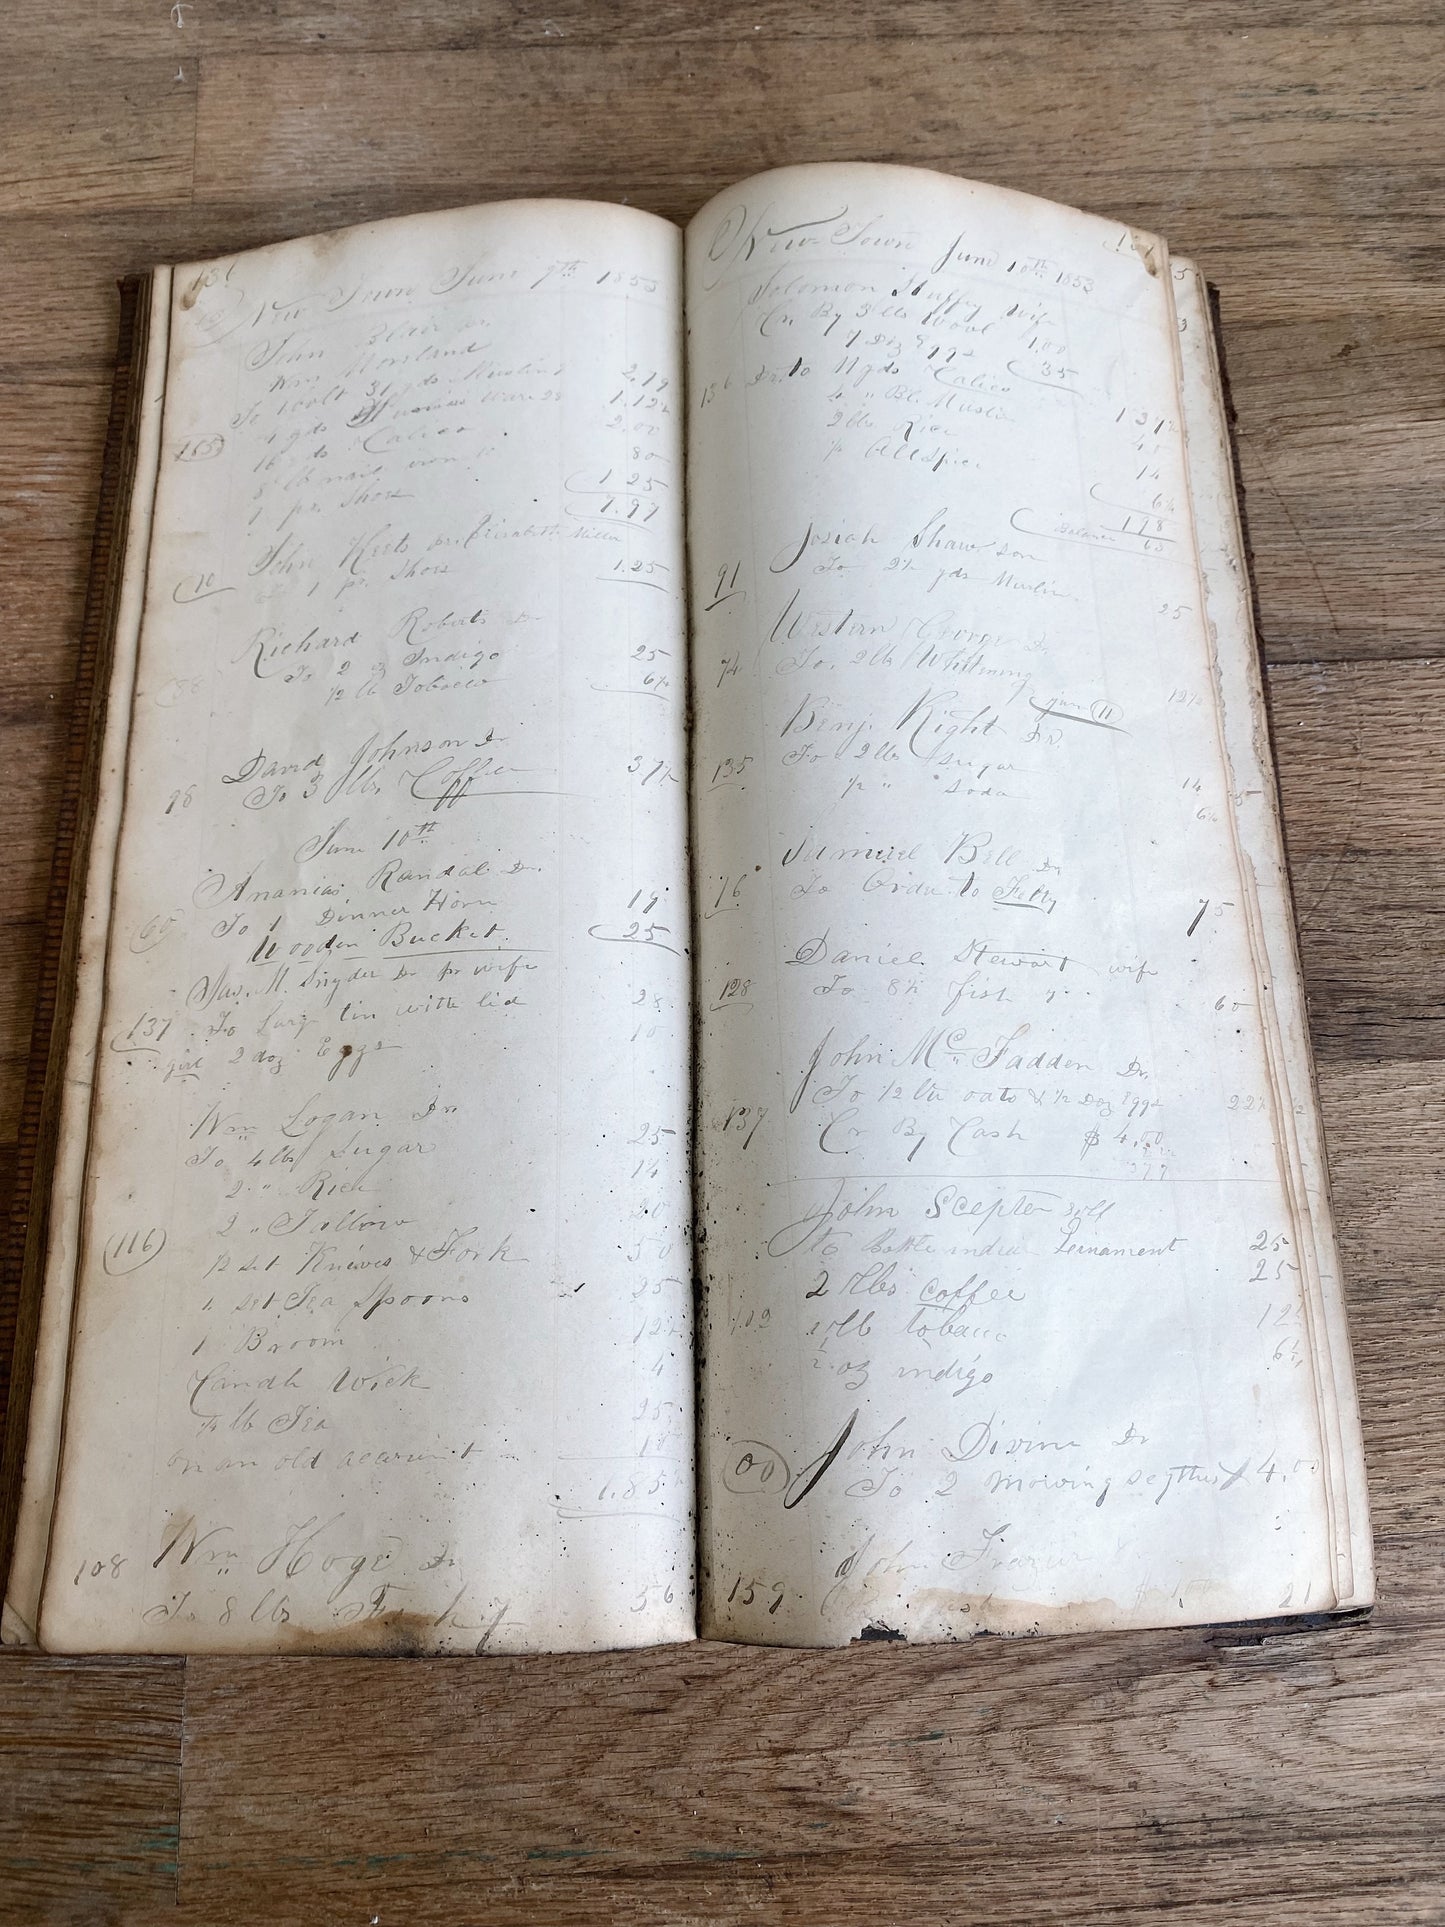 136
New Town June 9th 1853
John Blair pr.
Wm Moreland
To 1 bolt 31 yds Muslin 2.79
4 yds 28 1.12½
165
16 yds Calico 2.00
8 lb nails 80
1 pr. Shoes 1 25
7.97
John Keets pr. Elizabeth Miller
10
1 pr. Shoes 1.25
Richard Roberts Dr
To 2 oz Indigo 25
88 ½ lb Tobacco 6¼
David Johnson Dr
98 To 3 lbs Coffee 37½
June 10th
Ananias Randal Dr.
60 To 1 Dinner Horn 19
Wooden Bucket 25
Jas. M. Snyder Dr pr wife
137 To Large tin with lid 28
girl 2 doz Eggs 10
Wm Logan Dr
To 4 lbs Sugar 25
2 " Rice 14
2 " Tallow 20
116 ½ set Knives & Fork 50
1 set Tea Spoons 25
1 Broom 12½
Candle Wick 4
¼ lb Tea 25
on an old account 10
1.85
108 Wm Hoge Dr
To 8 lbs 56
New Town June 10th 1853
Solomon wife
Cr. By 3 lbs Wool 1.00
7 Doz Eggs 35
136 Dr. to 11 yds Calico 1 37½
4 " Bl. Muslin
2 lbs Rice 14
Allspice 6¼
1 98
Balance 63
Josiah Shaw, son
91 To 2½ yds Muslin 25
Western George Dr.
74 To 2 lb Whitening 12½
June 11
Benj. Kight Dr.
135 To 2 lbs Sugar 14
½ " Soda 6¼
Samuel Bell Dr
16 To Order to 75
Daniel Stewart wife
128 To 8½ fish 60
John McFadden Dr.
To ½ oats & ½ Doz Eggs 22½
137
Cr By Cash $ 4.00
377
John Scepter self
to Bottle indian Leinament 25
2 lbs coffee 25
lb tobacco 12½
½ oz indigo 6¼
John Divine Dr
00 To 2 mowing scythes $ 4.00
John Frazier
159 21